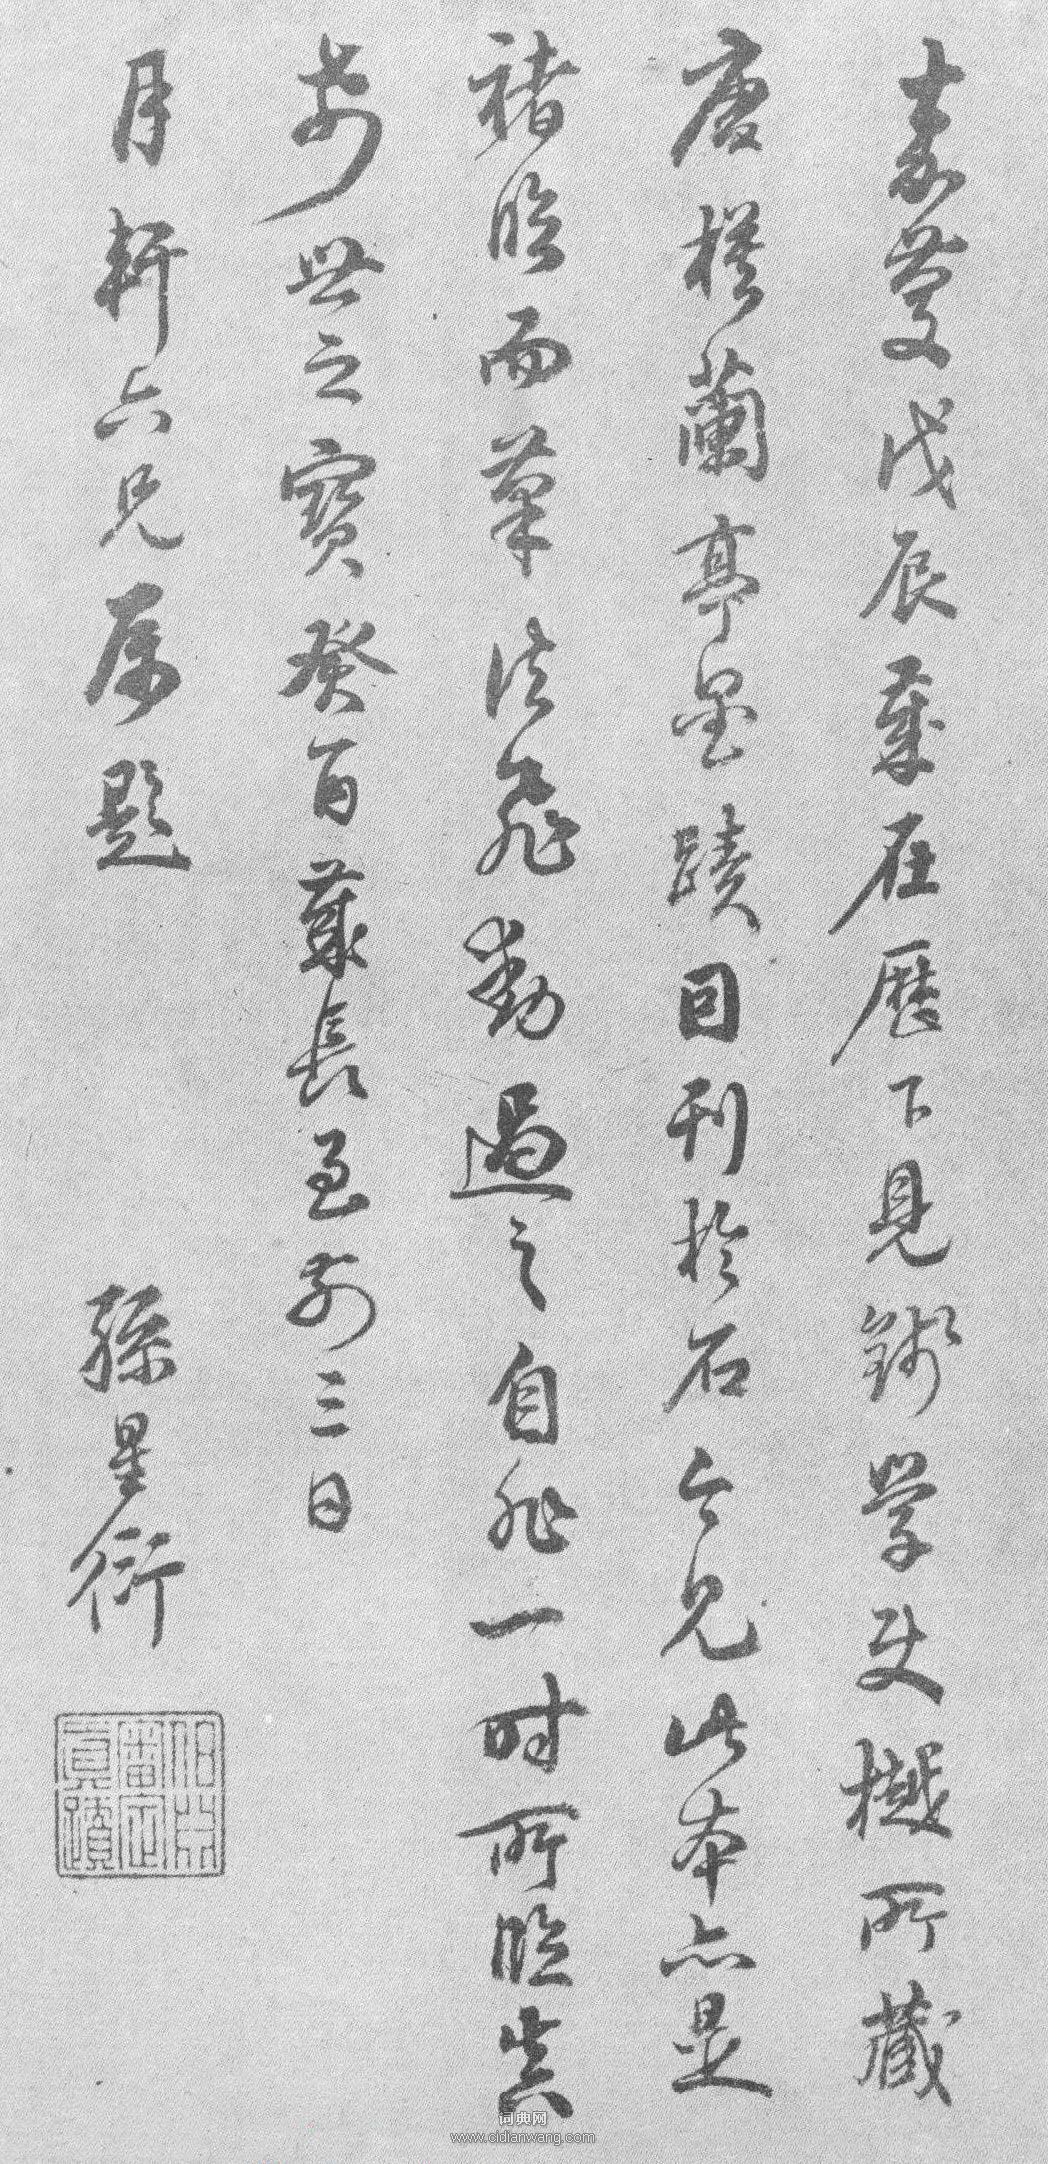 嘉慶戊辰歲在歷下見錢學使樾所藏
唐模蘭亭墨蹟因刊於石今見此本亦是
褚臨而筆法飛動過之自非一時所臨真
希世之寶癸酉歲長至前三日
月軒六兄属題
孫星衍
伯淵審定真蹟
词典网
www.cidianwang.com